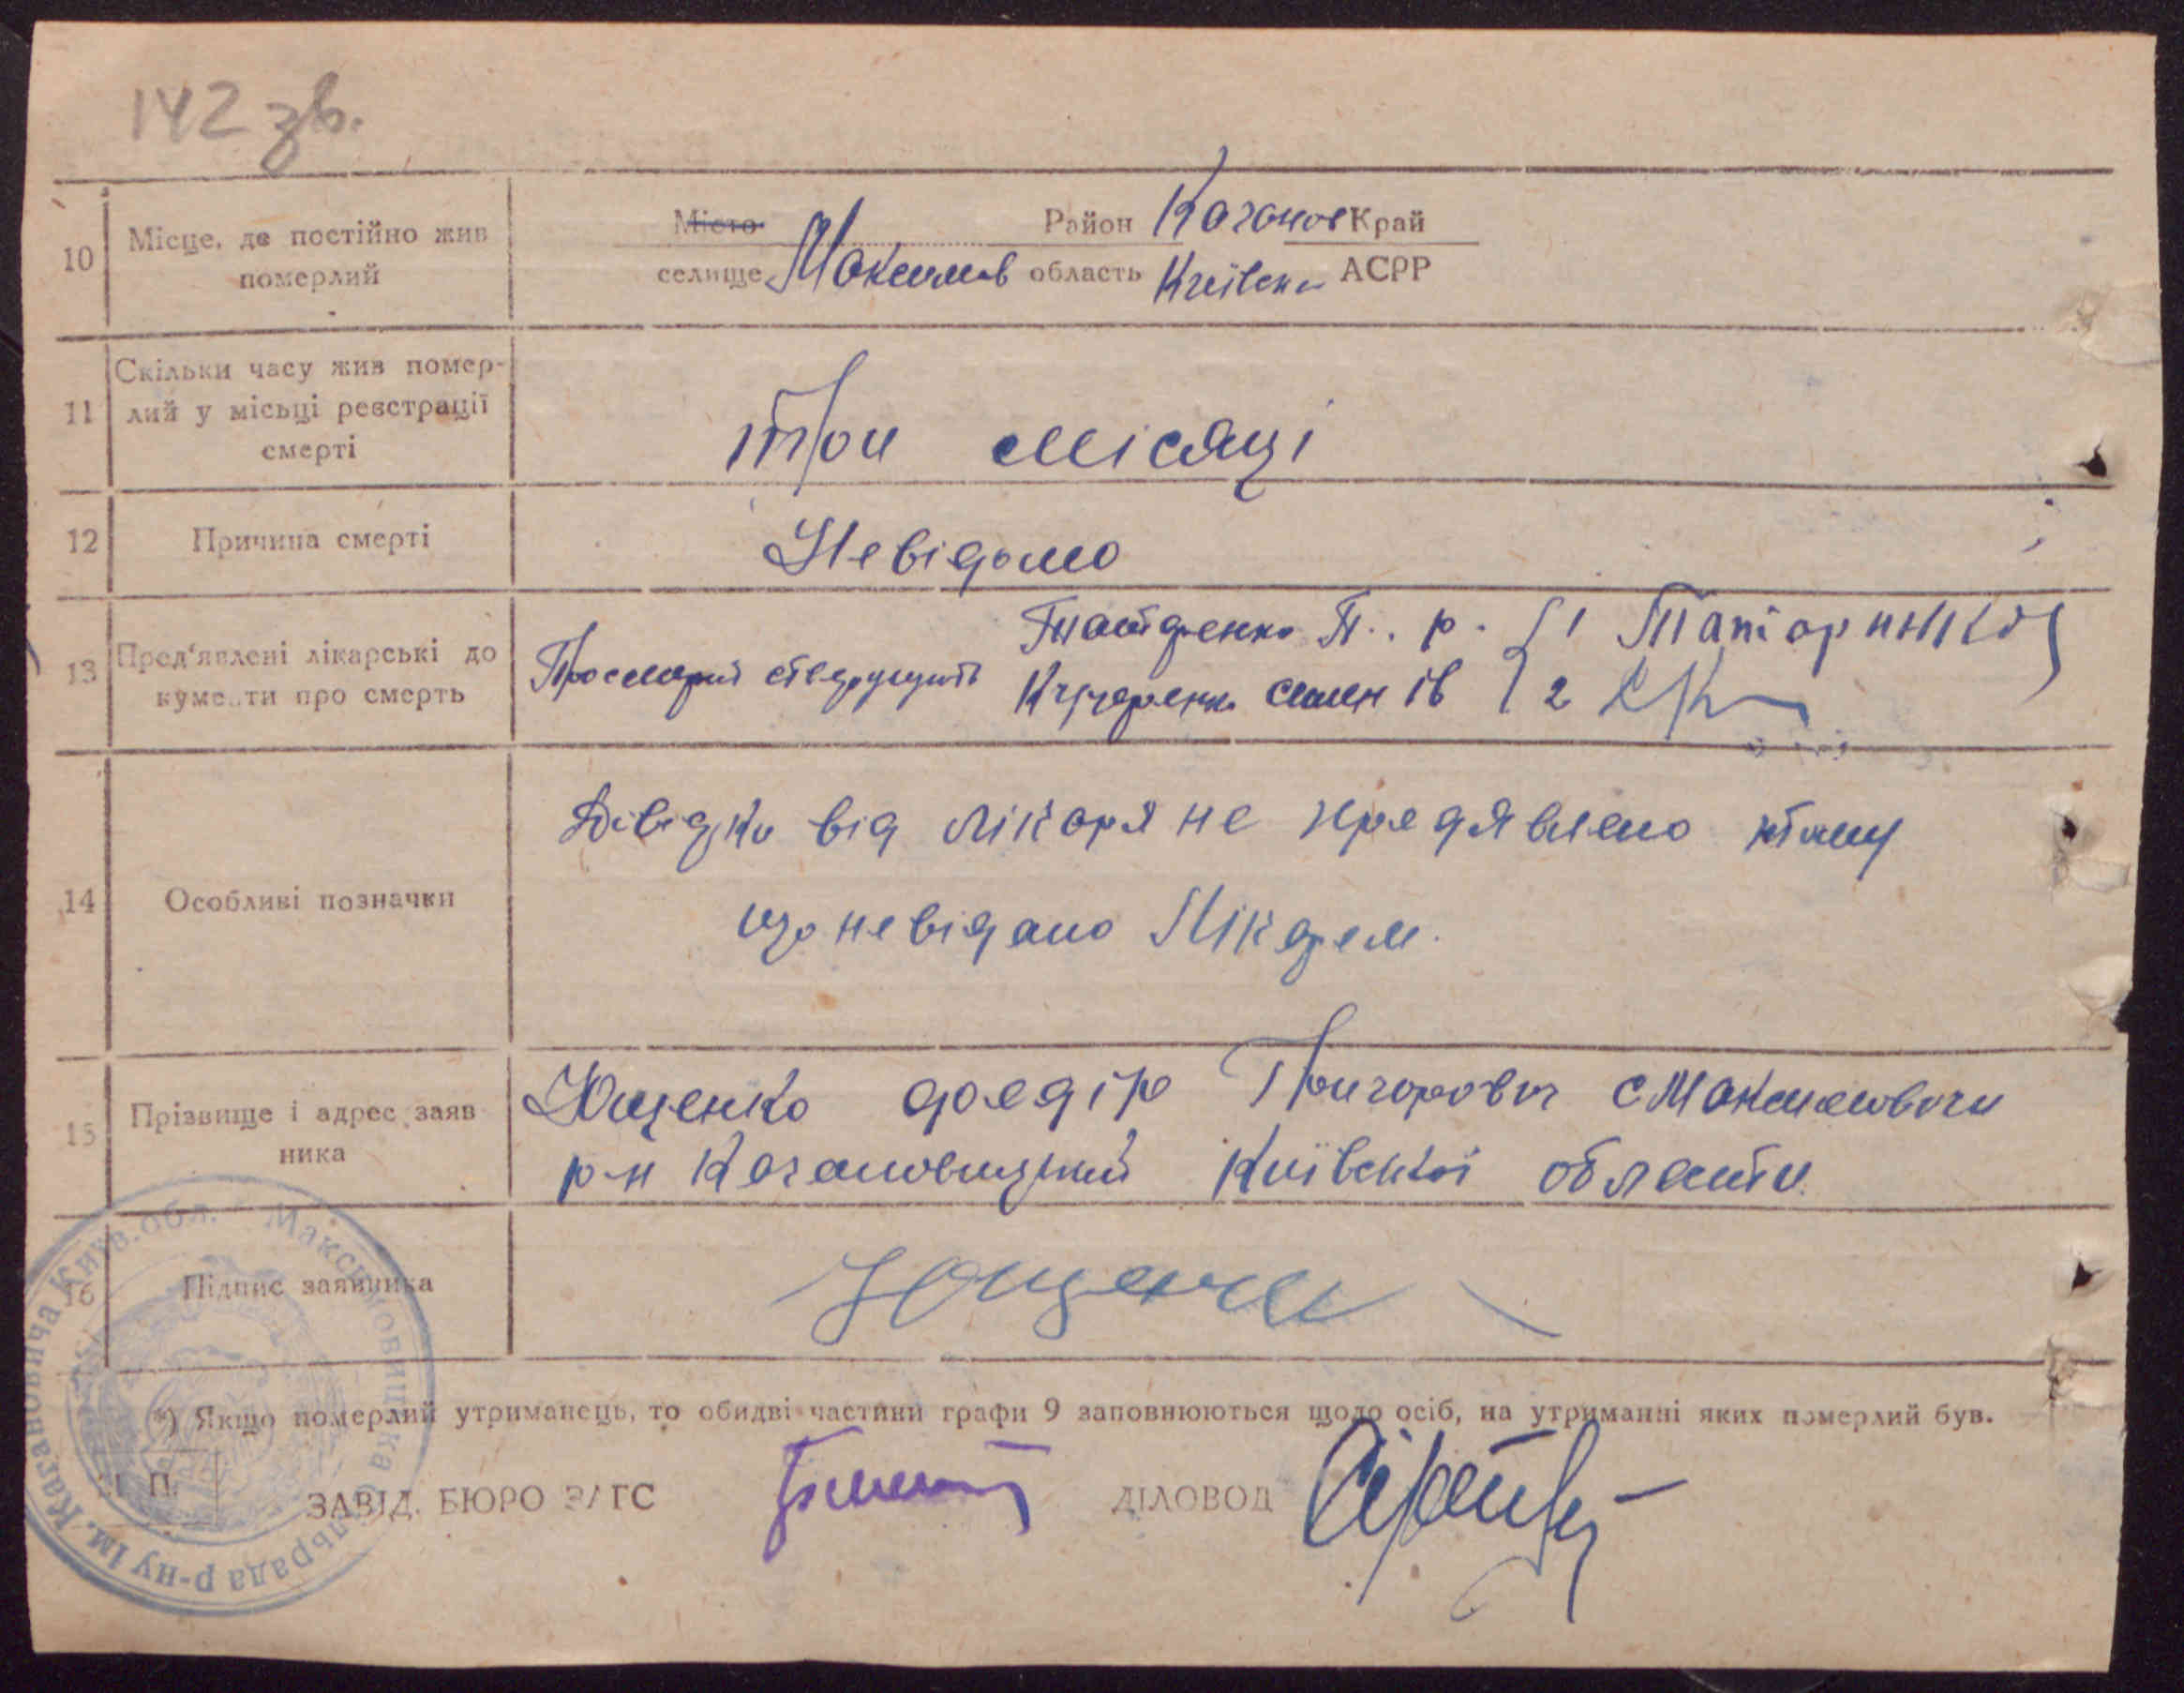 142 зв.
10 Місце, де постійно жив померлий
Місто Район Каганов Край
селище Максимов область Київська АСРР
11 Скільки часу жив помер-
лий у місьці реєстрації
смерті
три місяці
12 Причина смерті Невідомо
13 Пред'явлені лікарські до
кументи про смерть
П. р. 1
Кучеренко Семен ів 2
14 Особливі позначки
Довідки від лікаря не предявлено тому
що невідано Лікарем.
15 Прізвище і адрес заяв
ника
Ющенко Григорович с Максимовичи
р-н Кагановицький Київської области
16 Підпис заявника
Ющенко
*) Якщо померлий утриманець, то обидві частини графи 9 заповнюються щодо осіб, на утриманні яких померлий був.
М. П.
ЗАВІД. БЮРО ЗАГС ДІЛОВОД
Максимовицька сільрада р-ну ім. Кагановича Київ. обл.